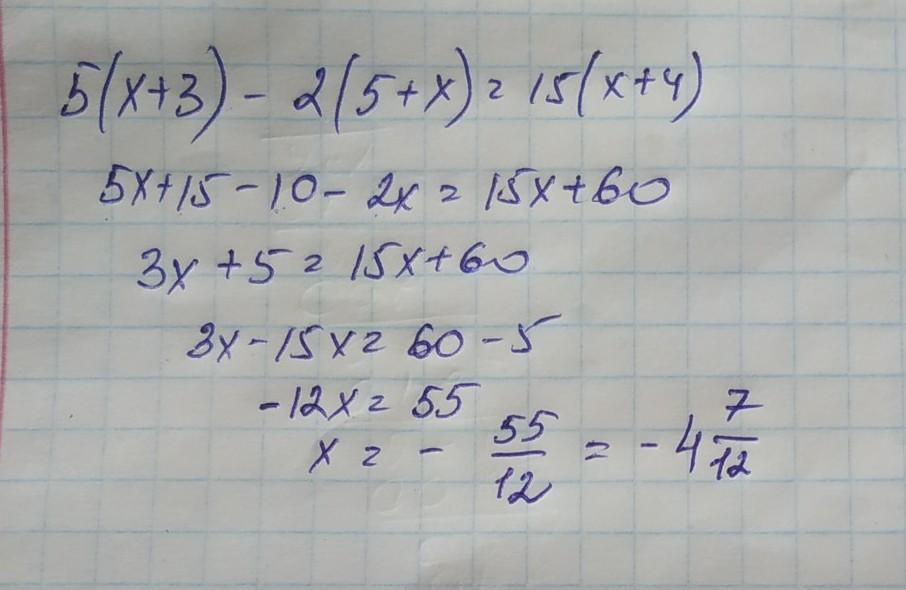 5(x+3) - 2(5+x) = 15(x+4)
5x+15-10-2x = 15x+60
3x+5 = 15x+60
3x-15x = 60-5
-12x = 55
x = - 55/12 = -4 7/12